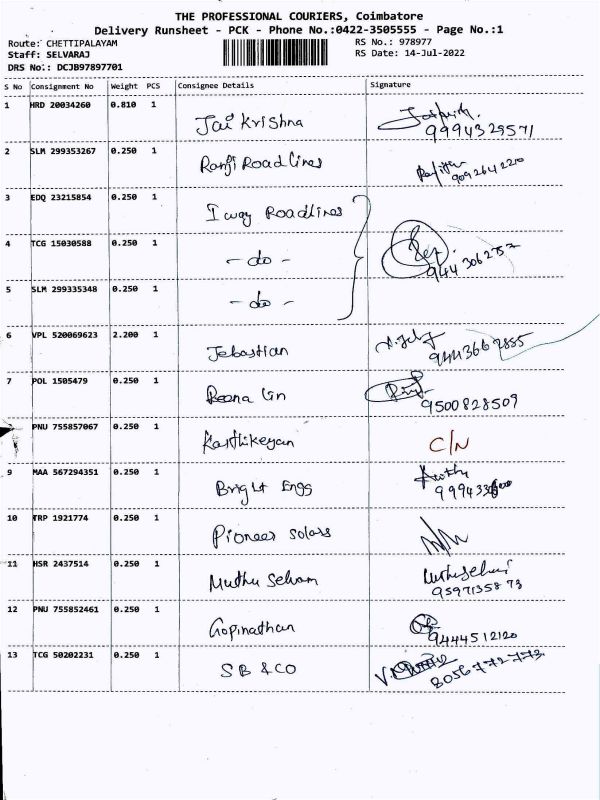 THE PROFESSIONAL COURIERS, Coimbatore
Delivery Runsheet - PCK - Phone No.:0422-3505555 - Page No.:1
Route: CHETTIPALAYAM
RS No.: 978977
Staff: SELVARAJ
RS Date: 14-Jul-2022
DRS No.: DCJB97897701
S No Consignment No Weight PCS Consignee Details Signature
1 HRD 20034260 0.810 1 Jai Krishna
9994329571
2 SLM 299353267 0.250 1 Ranji Road Lines
9092642210
3 EDQ 23215854 0.250 1 I way Roadlines
4 TCG 15030588 0.250 1 - do -
5 SLM 299335348 0.250 1 - do -
6 VPL 520069623 2.200 1 Jebastian
9443662855
7 POL 1505479 0.250 1 Reena Lin
9500828509
PNU 755857067 0.250 1 Karthikeyan C/N
9 MAA 567294351 0.250 1 Bright Engg
10 TRP 1921774 0.250 1 Pioneer Solars
11 HSR 2437514 0.250 1 Muthu Selvam
9597135873
12 PNU 755852461 0.250 1 Gopinathan
9444512120
13 TCG 50202231 0.250 1 SB & CO
8056772773